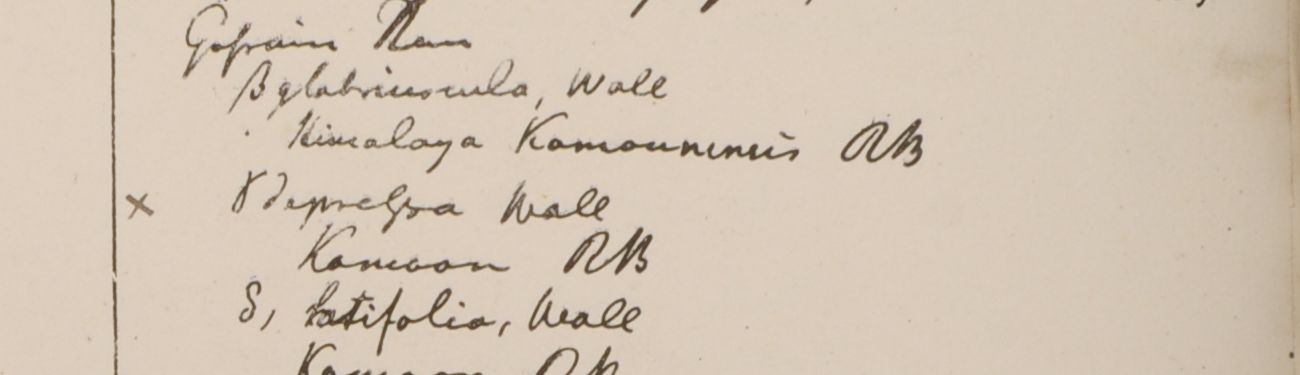 Gossain Than
β glabriuscula, Wall
Himalaya Kamounensis RB
× γ depressa Wall
Kamoon RB
δ, latifolia, Wall
Kamoon RB